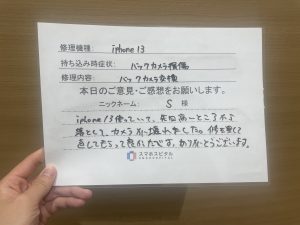 修理機種： iphone 13
持ち込み時症状： バックカメラ損傷
修理内容： バックカメラ交換
本日のご意見・ご感想をお願いします。
ニックネーム： S 様
iphone13使っていて、
落として、カメラが壊れました。
直してもらって良かったです。ありがとうございます。
スマホスピタル